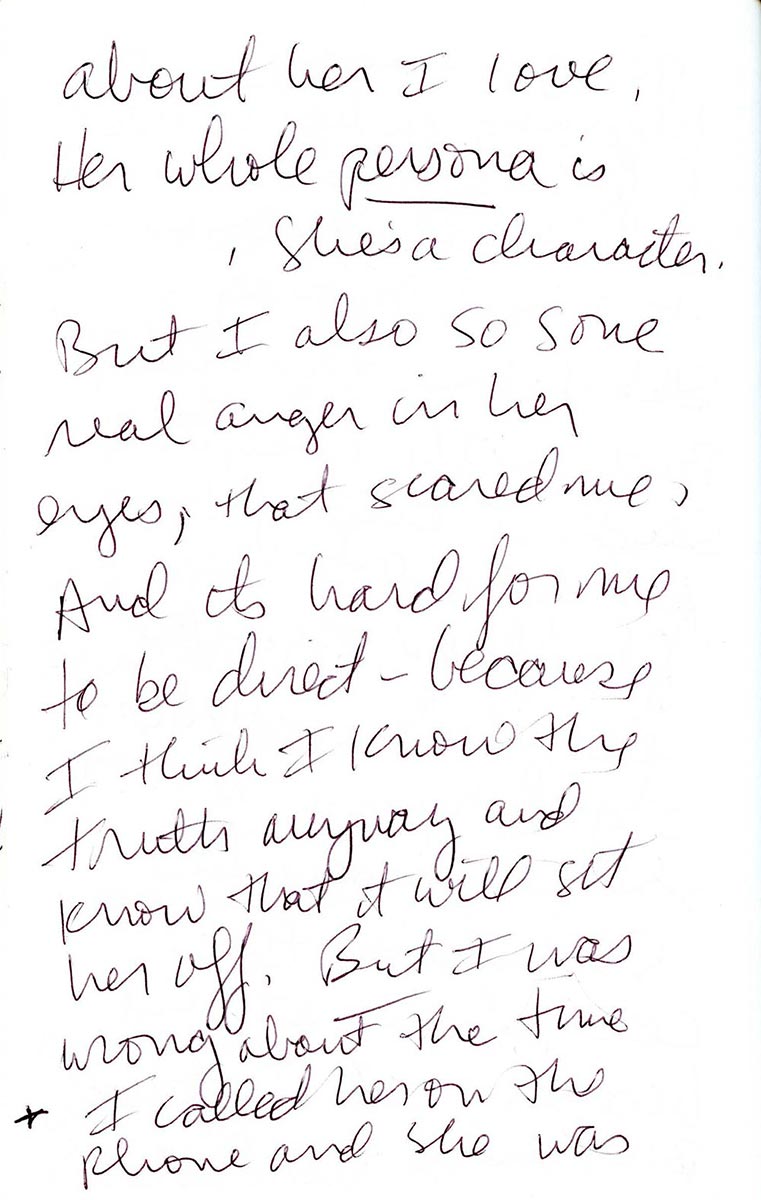 about her I love.
Her whole persona is
, She's a character.
But I also so some
real anger in her
eyes, that scared me,
And its hard for me
to be direct – because
I think I know the
truth anyway and
know that it will set
her off. But I was
wrong about the time
* I called her on the
phone and she was